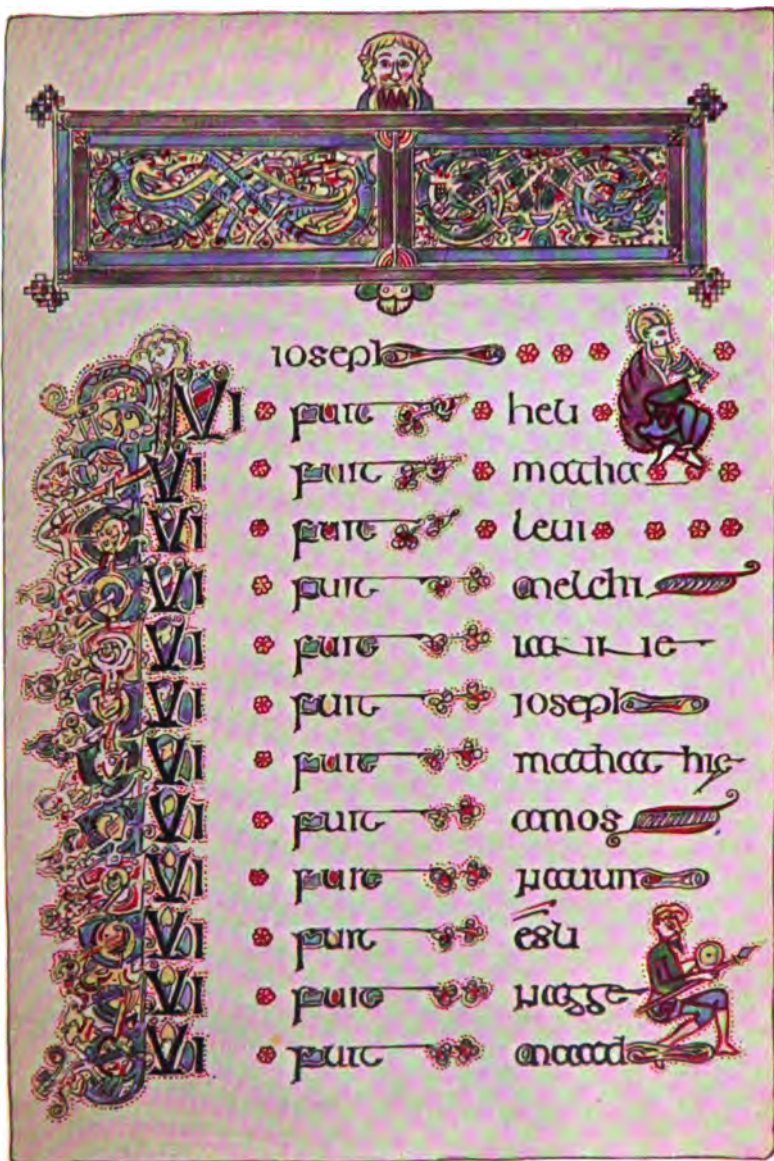 ioseph
QVI fuit heli
QVI fuit matha
QVI fuit levi
QVI fuit melchi
QVI fuit
QVI fuit ioseph
QVI fuit mathathie
QVI fuit amos
QVI fuit nauum
QVI fuit esli
QVI fuit nagge
QVI fuit maad